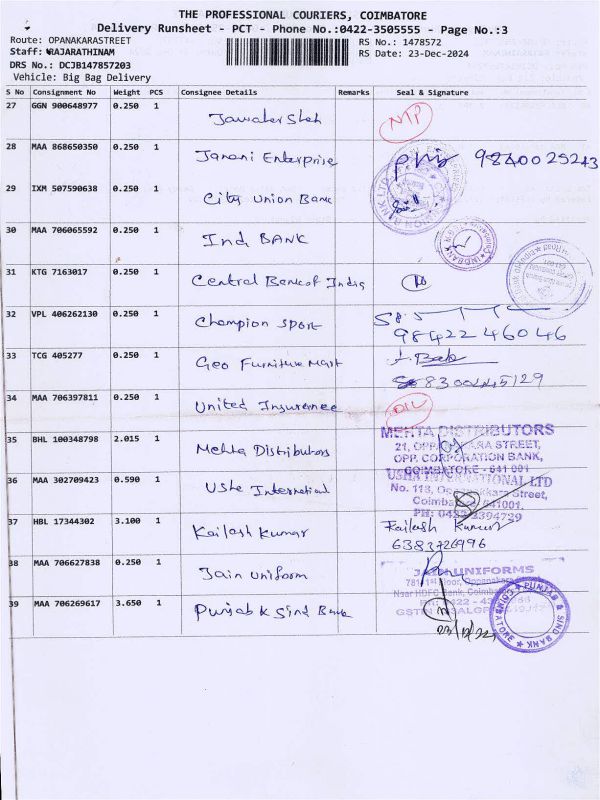 THE PROFESSIONAL COURIERS, COIMBATORE
Delivery Runsheet - PCT - Phone No.:0422-3505555 - Page No.:3
Route: OPANAKARASTREET
RS No.: 1478572
Staff: RAJARATHINAM
RS Date: 23-Dec-2024
DRS No.: DCJB147857203
Vehicle: Big Bag Delivery
S No Consignment No Weight PCS Consignee Details Remarks Seal & Signature
27 GGN 900648977 0.250 1 Jawaher Shah NTP
28 MAA 868650350 0.250 1 Janani Enterprise 9840025243
29 IXM 507590638 0.250 1 City Union Bank
30 MAA 706065592 0.250 1 Ind BANK
31 KTG 7163017 0.250 1 Central Bank of India
32 VPL 406262130 0.250 1 Champion Sport
98422 46046
33 TCG 405277 0.250 1 Geo Furniture Mart
8300445129
34 MAA 706397811 0.250 1 United Insurance
35 BHL 100348798 2.015 1 Mehta Distributors
MEHTA DISTRIBUTORS
21, STREET,
OPP. CORPORATION BANK,
COIMBATORE - 641 001
36 MAA 302709423 0.590 1 Usha International
USHA INTERNATIONAL LTD
No. 118, Street,
641001.
37 HBL 17344302 3.100 1 Kailash Kumar
Kailash Kumar
6383726996
38 MAA 706627838 0.250 1 Jain Uniform
UNIFORMS
1st Floor,
Near HDFC Bank,
39 MAA 706269617 3.650 1 Punjab & Sind Bank
PUNJAB & SIND BANK
COIMBATORE
23/12/24